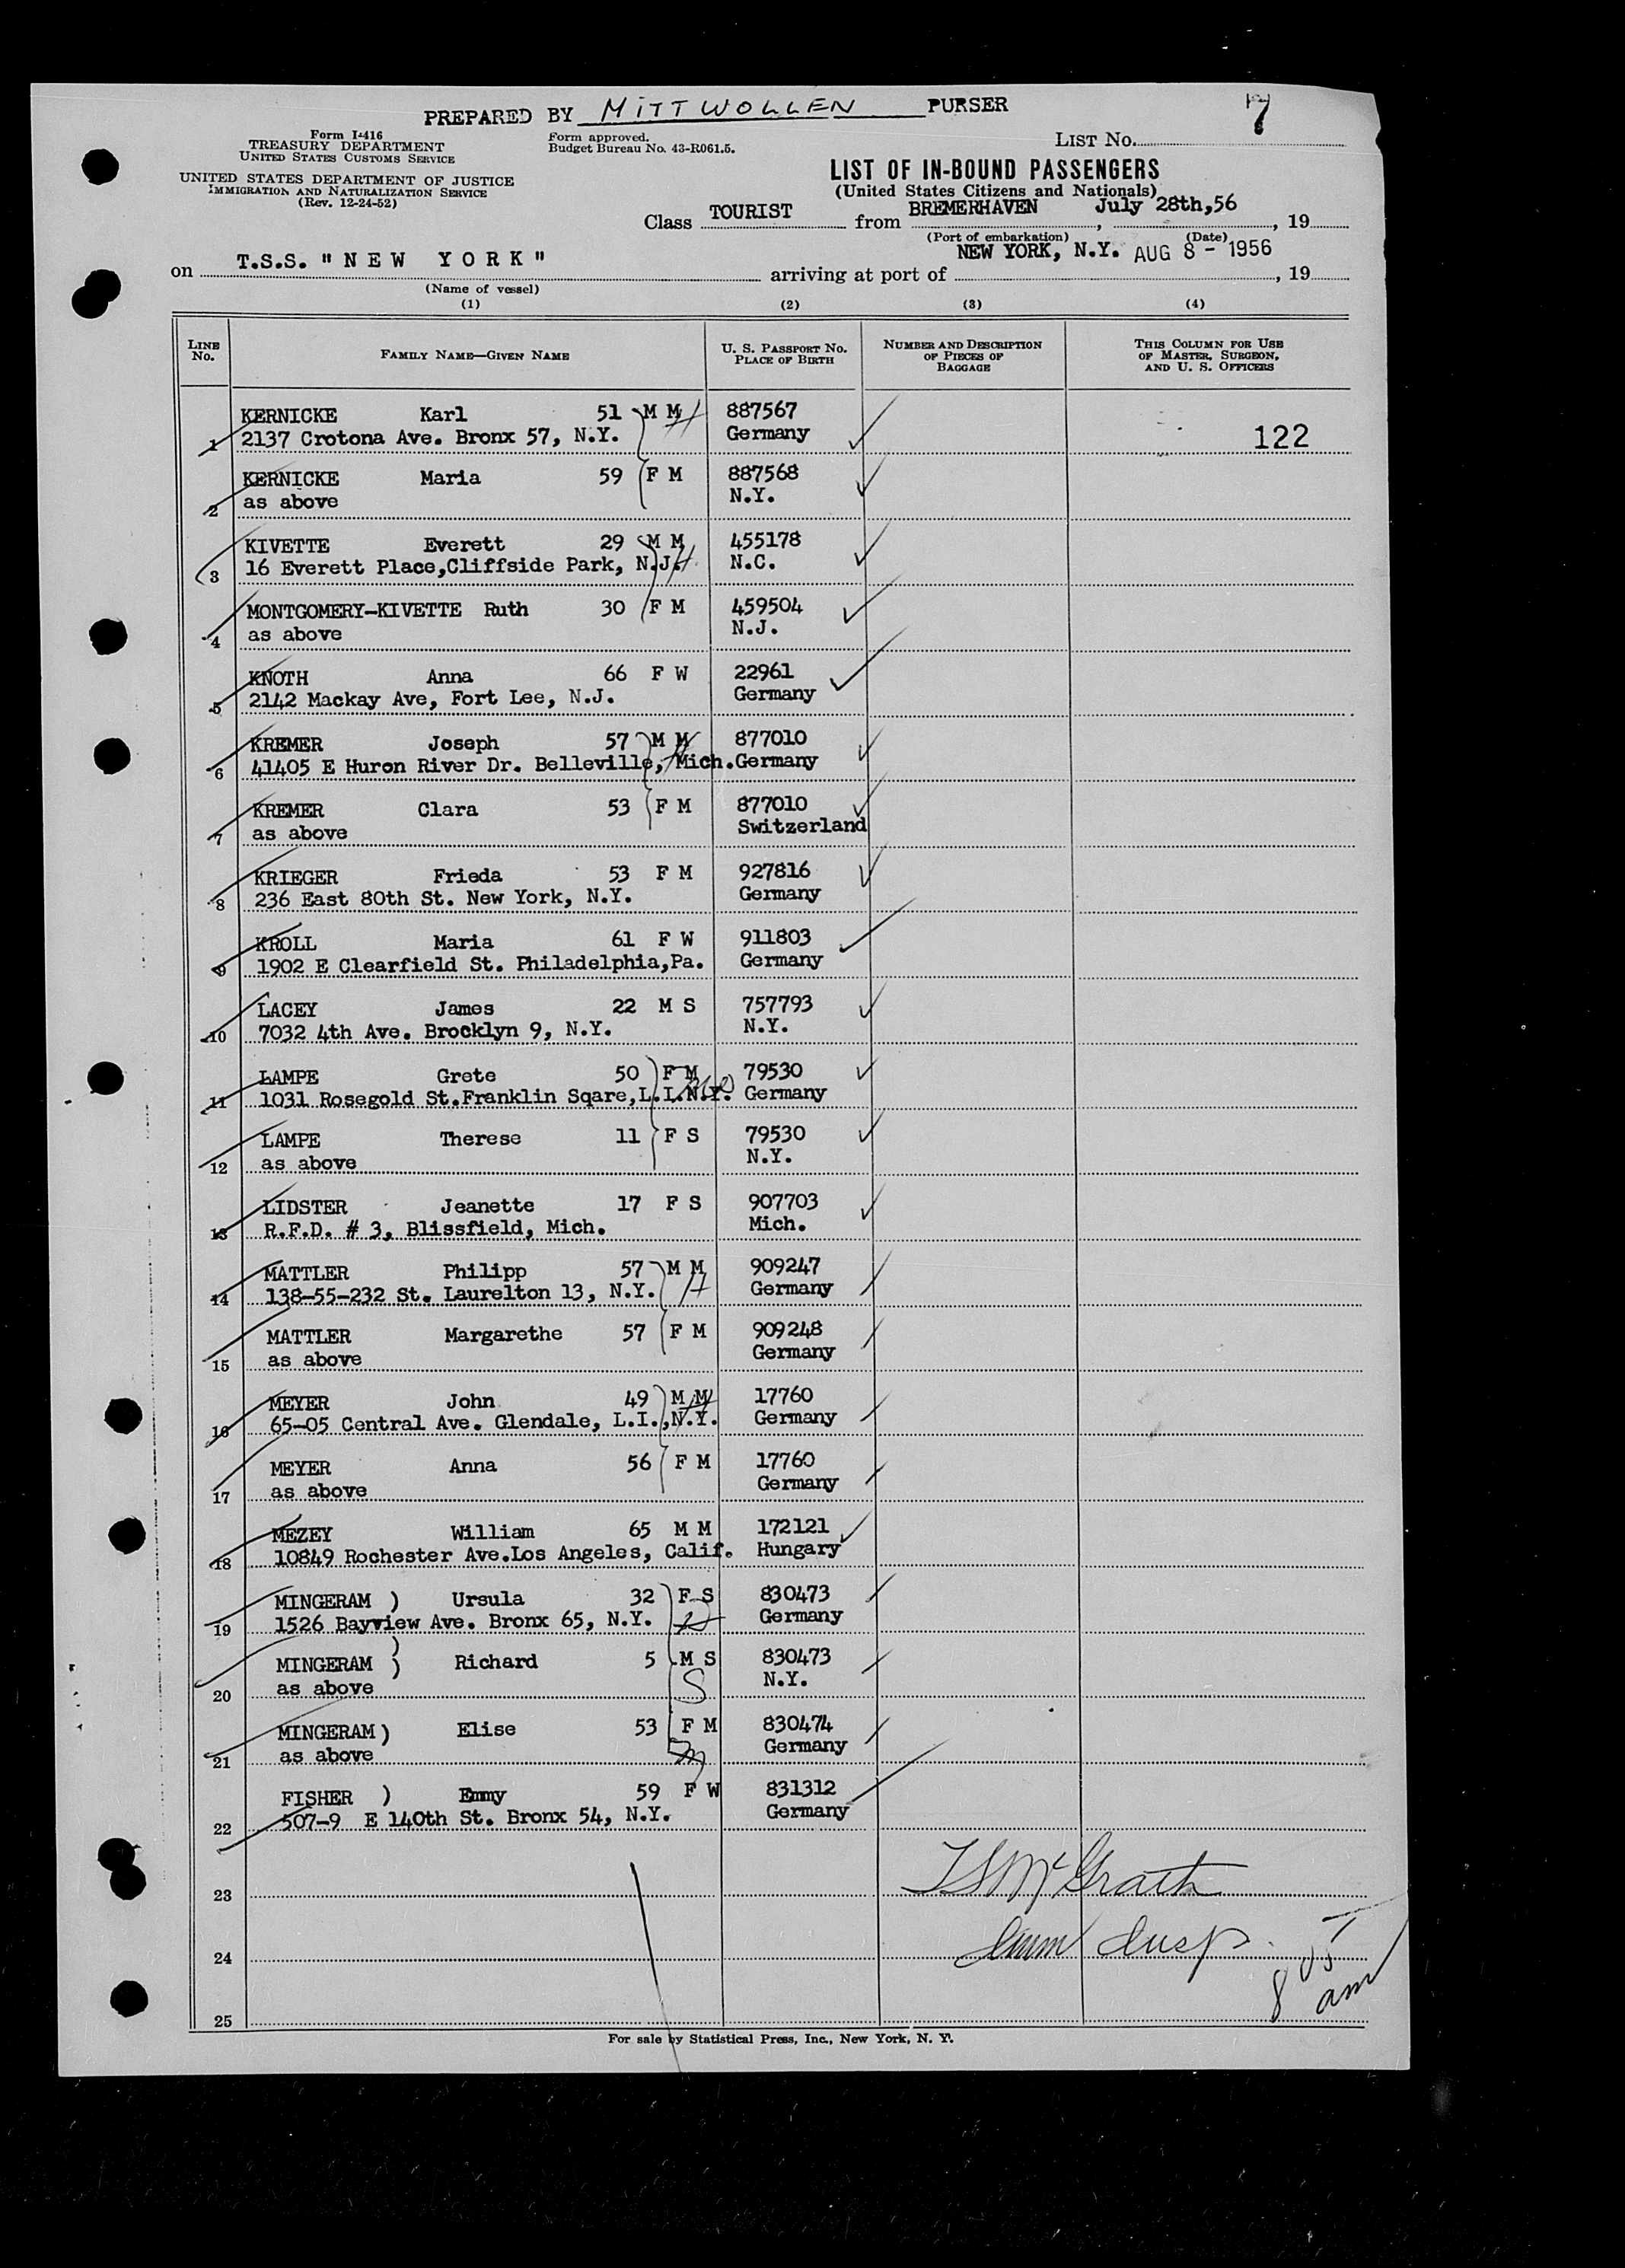 PREPARED BY MITTWOLLEN PURSER
7
Form I-416
TREASURY DEPARTMENT
UNITED STATES CUSTOMS SERVICE
Form approved.
Budget Bureau No. 43-R061.5.
LIST No.
UNITED STATES DEPARTMENT OF JUSTICE
IMMIGRATION AND NATURALIZATION SERVICE
(Rev. 12-24-52)
LIST OF IN-BOUND PASSENGERS
(United States Citizens and Nationals)
Class TOURIST from BREMERHAVEN, July 28th,56, 19
(Port of embarkation) (Date)
on T.S.S. "NEW YORK" arriving at port of NEW YORK, N.Y. AUG 8 - 1956, 19
(Name of vessel)
(1) (2) (3) (4)
LINE No. FAMILY NAME—GIVEN NAME U. S. PASSPORT No. PLACE OF BIRTH NUMBER AND DESCRIPTION OF PIECES OF BAGGAGE THIS COLUMN FOR USE OF MASTER, SURGEON, AND U. S. OFFICERS
KERNICKE Karl 51 M M 887567
1 2137 Crotona Ave. Bronx 57, N.Y. Germany 122
KERNICKE Maria 59 F M 887568
2 as above N.Y.
KIVETTE Everett 29 M M 455178
3 16 Everett Place,Cliffside Park, N.J. N.C.
MONTGOMERY-KIVETTE Ruth 30 F M 459504
4 as above N.J.
KNOTH Anna 66 F W 22961
5 2142 Mackay Ave, Fort Lee, N.J. Germany
KREMER Joseph 57 M M 877010
6 41405 E Huron River Dr. Belleville, Mich. Germany
KREMER Clara 53 F M 877010
7 as above Switzerland
KRIEGER Frieda 53 F M 927816
8 236 East 80th St. New York, N.Y. Germany
KROLL Maria 61 F W 911803
9 1902 E Clearfield St. Philadelphia,Pa. Germany
LACEY James 22 M S 757793
10 7032 4th Ave. Brocklyn 9, N.Y. N.Y.
LAMPE Grete 50 F M 79530
11 1031 Rosegold St.Franklin Sqare,L.I.N.Y. Germany
LAMPE Therese 11 F S 79530
12 as above N.Y.
LIDSTER Jeanette 17 F S 907703
13 R.F.D. # 3, Blissfield, Mich. Mich.
MATTLER Philipp 57 M M 909247
14 138-55-232 St. Laurelton 13, N.Y. H Germany
MATTLER Margarethe 57 F M 909248
15 as above Germany
MEYER John 49 M M 17760
16 65-05 Central Ave. Glendale, L.I.,N.Y. Germany
MEYER Anna 56 F M 17760
17 as above Germany
MEZEY William 65 M M 172121
18 10849 Rochester Ave.Los Angeles, Calif. Hungary
MINGERAM ) Ursula 32 F S 830473
19 1526 Bayview Ave. Bronx 65, N.Y. Germany
)
MINGERAM ) Richard 5 M S 830473
20 as above S N.Y.
MINGERAM ) Elise 53 F M 830474
21 as above Germany
FISHER ) Emmy 59 F W 831312
22 507-9 E 140th St. Bronx 54, N.Y. Germany
23 McGrath
24 Imm Insp.
8 05 am
25
For sale by Statistical Press, Inc., New York, N. Y.